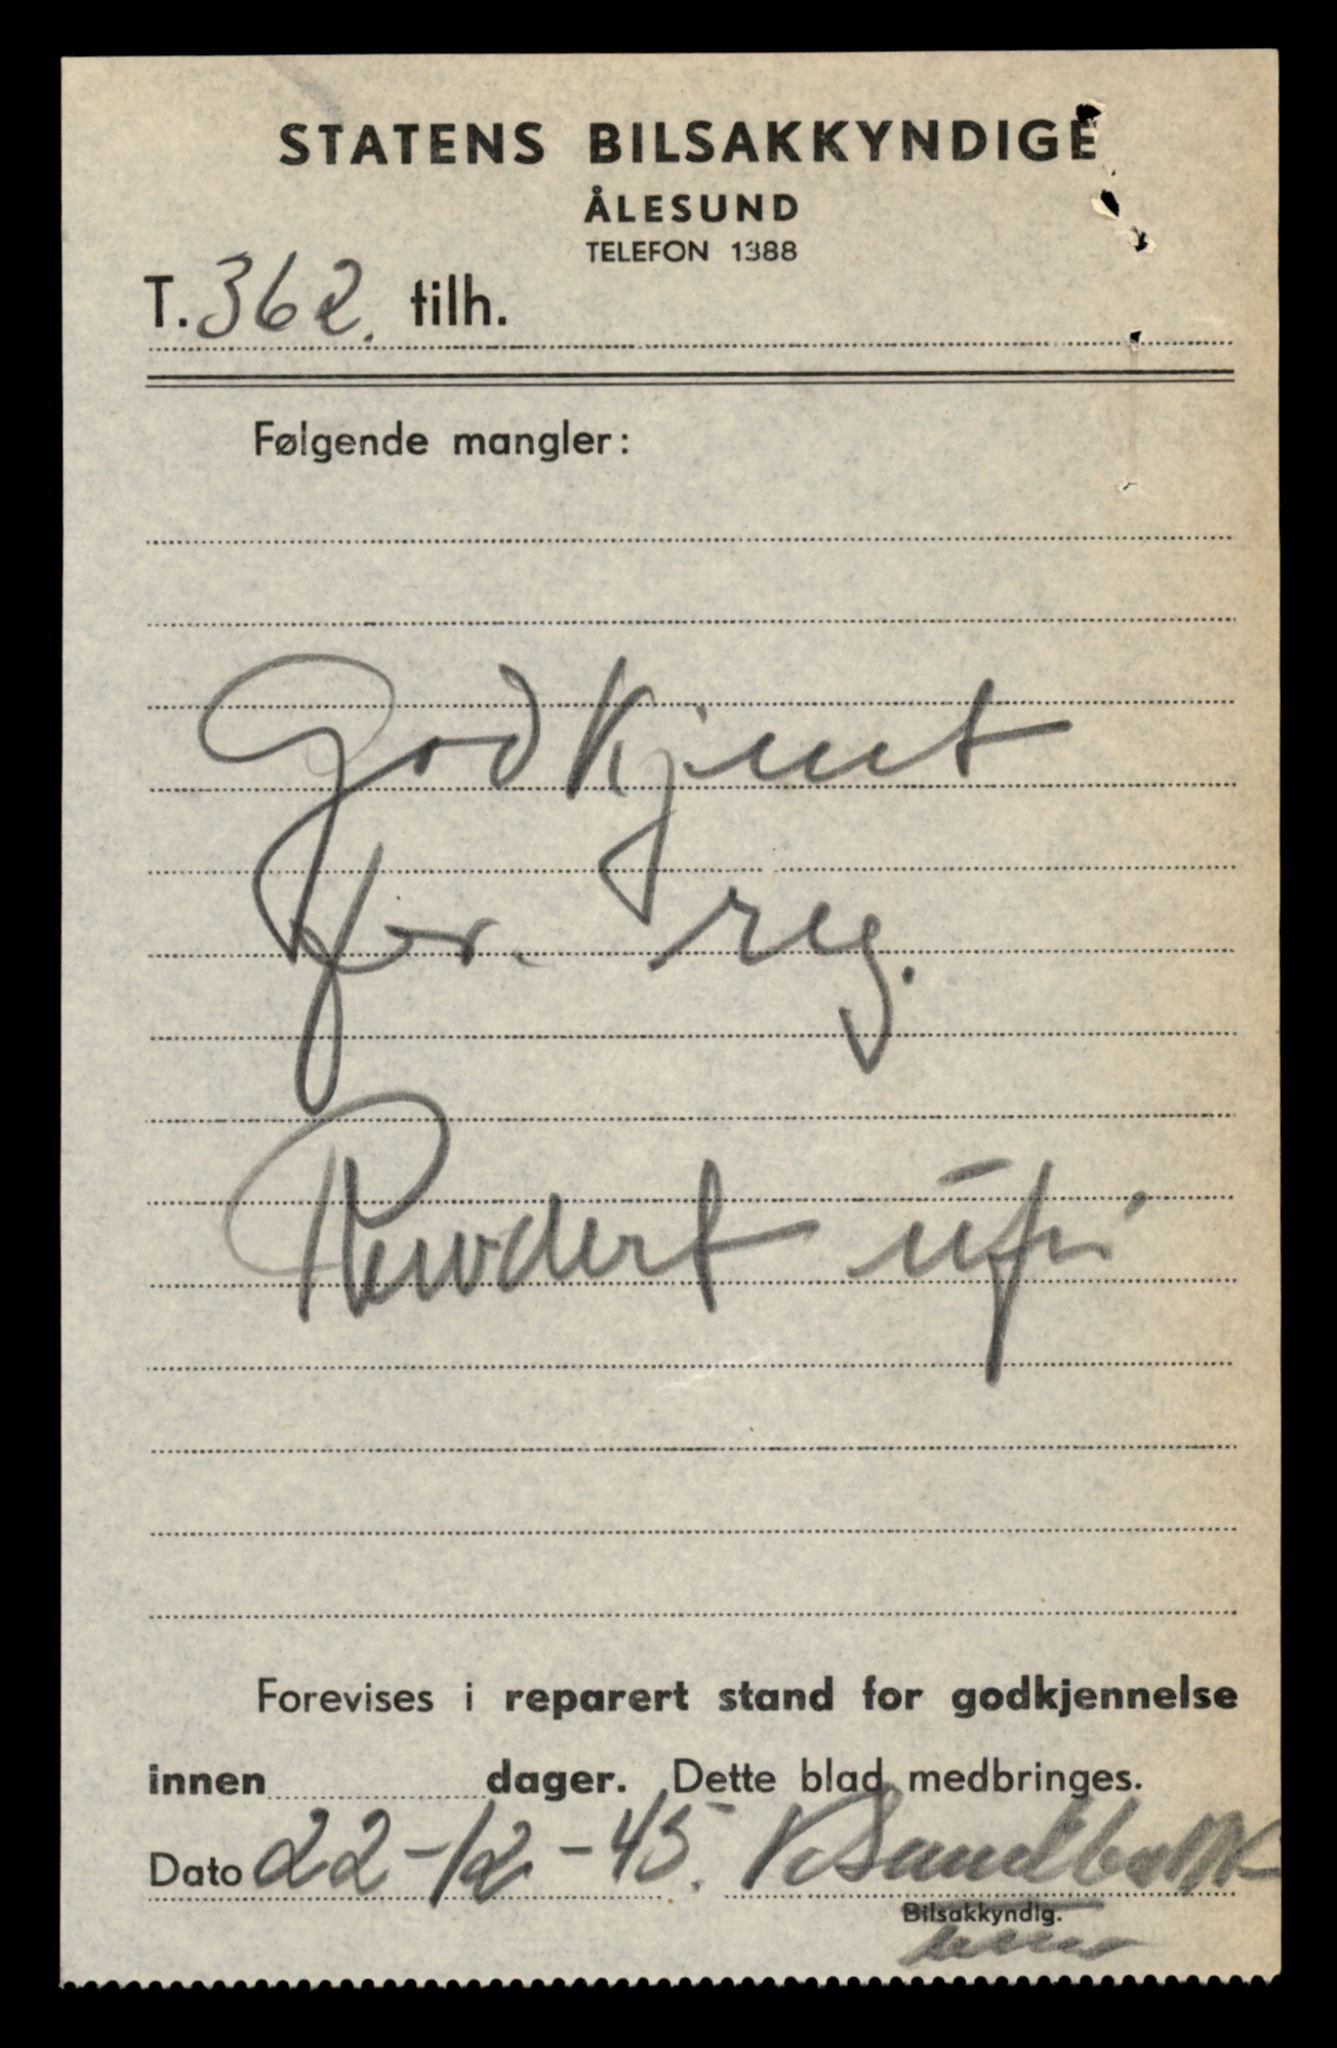 STATENS BILSAKKYNDIGE
ÅLESUND
TELEFON 1388
T. 362. tilh.
Følgende mangler:
Godkjent
for reg.
Forevises i reparert stand for godkjennelse
innen dager. Dette blad medbringes.
Dato 22-12-45.
Bilsakkyndig.